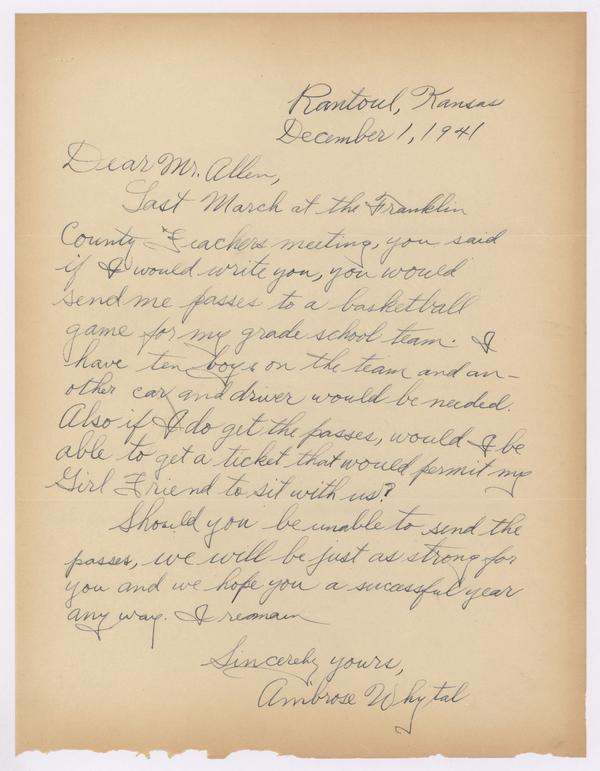 Rantoul, Kansas
December 1, 1941
Dear Mr. Allen,
Last March at the Franklin
County Teachers meeting, you said
if I would write you, you would
send me passes to a basketball
game for my grade school team. I
have ten boys on the team and an-
other car and driver would be needed.
Also if I do get the passes, would I be
able to get a ticket that would permit my
Girl Friend to sit with us?
Should you be unable to send the
passes, we will be just as strong for
you and we hope you a successful year
any way. I remain
Sincerely yours,
Ambrose Whytal